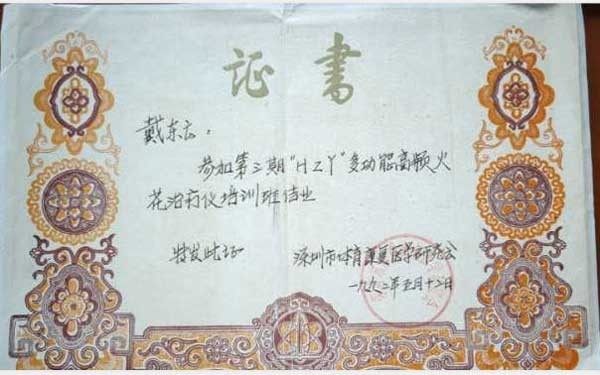 证书
戴东云：
参加第三期"HZY"多功能高频火
花治疗仪培训班结业
特发此证
深圳市体育康复医学研究会
一九九二年五月十二日